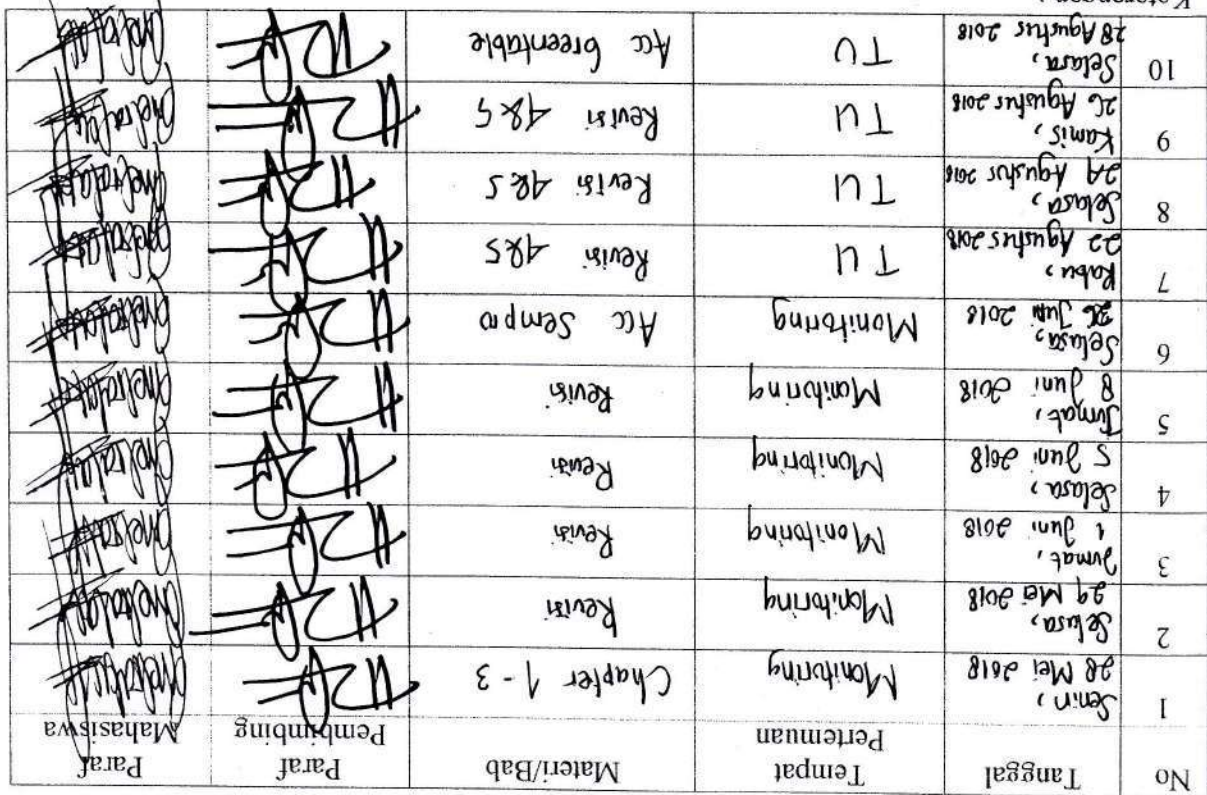 No Tanggal Tempat Pertemuan Materi/Bab Paraf Pembimbing Paraf Mahasiswa
1 Senin, 28 Mei 2018 Monitoring Chapter 1 - 3
2 Selasa, 29 Mei 2018 Monitoring Revisi
3 Jumat, 1 Juni 2018 Monitoring Revisi
4 Selasa, 5 Juni 2018 Monitoring Revisi
5 Jumat, 8 Juni 2018 Monitoring Revisi
6 Selasa, 26 Juni 2018 Monitoring Acc Sempro
7 Rabu, 22 Agustus 2018 TU Revisi 4&5
8 Selasa, Agustus 2018 TU Revisi 4&5
9 Kamis, 26 Agustus 2018 TU Revisi 4&5
10 Selasa, 28 Agustus 2018 TU Acc Greentable
Keterangan :